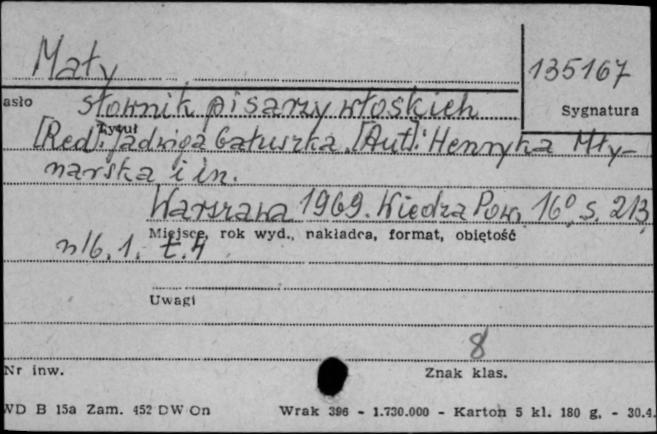 Mały
135167
asło
słownik pisarzy włoskich
Sygnatura
Tytuł
[Red.: Jadwiga Gałuszka. [Aut]: Henryka Mły-
narska i in.
Warszawa 1969. Wiedza Pow. 16°, s. 213,
Miejsce, rok wyd., nakładca, format, objętość
nlb. 1. t. 4
Uwagi
8
Nr inw.
Znak klas.
WD B 15a Zam. 452 DW On Wrak 396 - 1.730.000 - Karton 5 kl. 180 g. - 30.4.